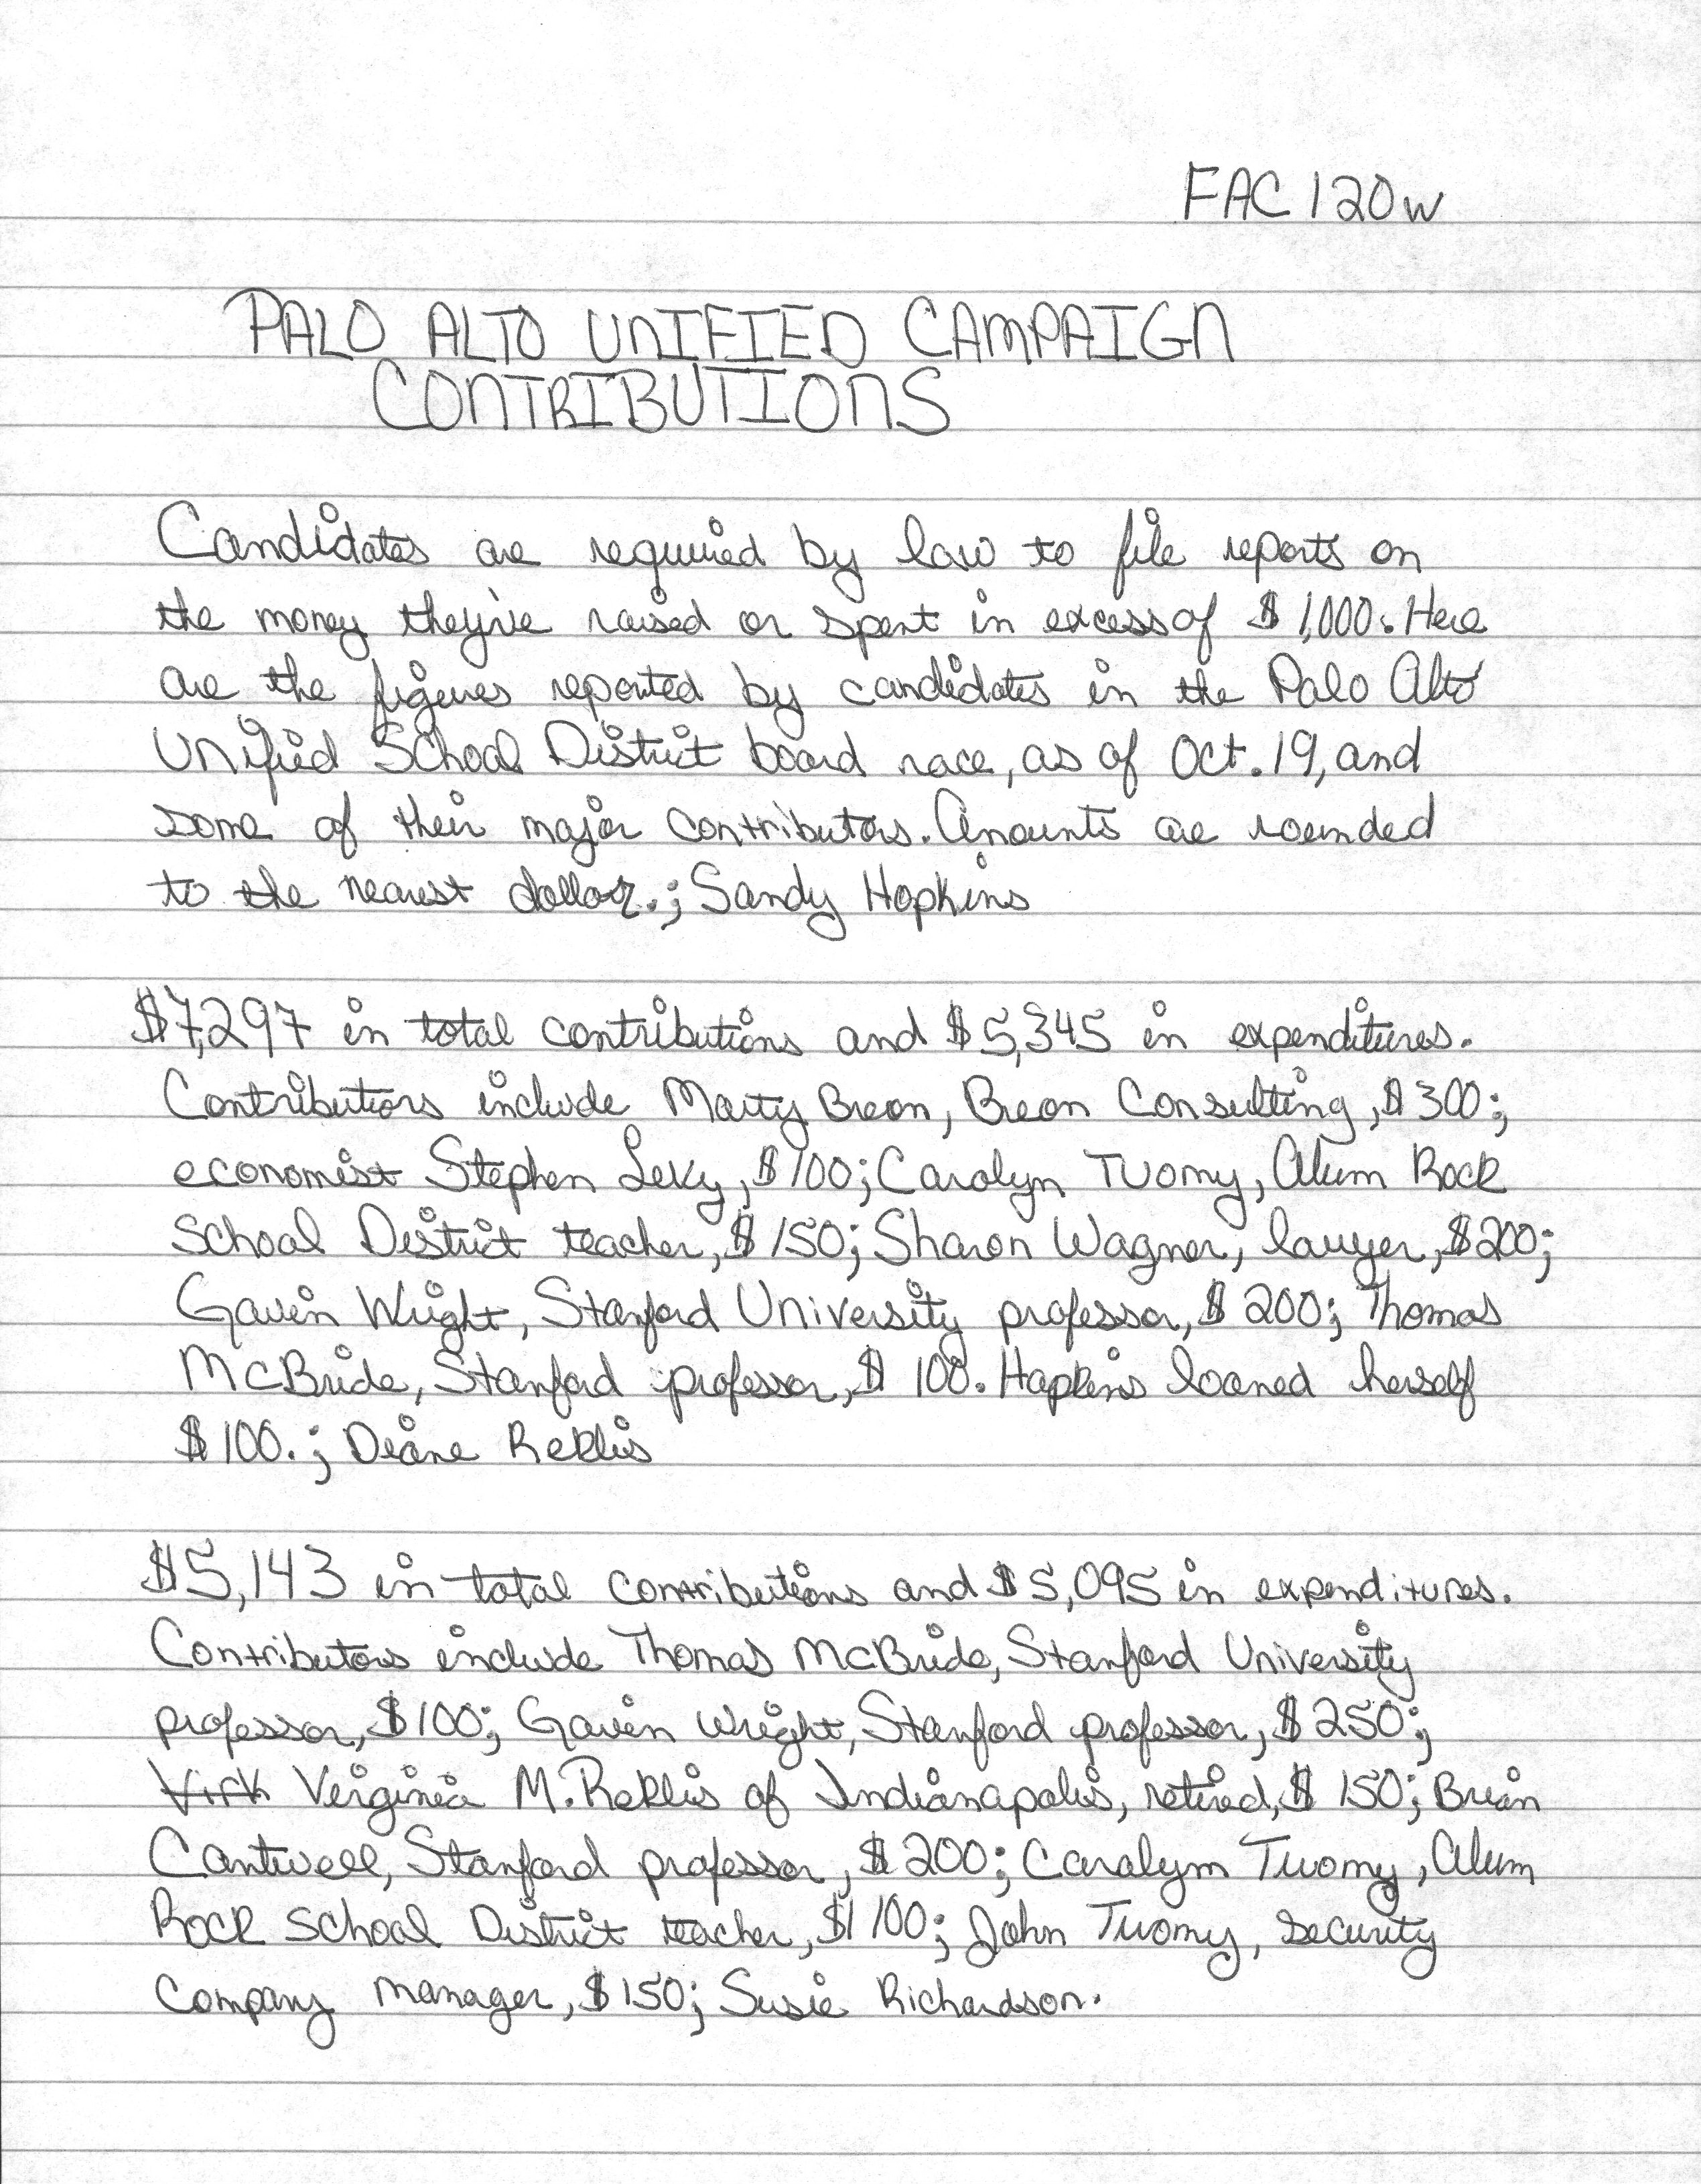 FAC 120w
PALO ALTO UNIFIED CAMPAIGN
CONTRIBUTIONS
Candidates are required by law to file reports on
the money they've raised or spent in excess of $1,000. Here
are the figures reported by candidates in the Palo Alto
Unified School District board race, as of Oct. 19, and
some of their major contributors. Amounts are rounded
to the nearest dollar.; Sandy Hopkins
$7,297 in total contributions and $5,345 in expenditures.
Contributors include Marty Breon, Breon Consulting, $300;
economist Stephen Levy, $100; Carolyn Tuomy, Alum Rock
School District teacher, $150; Sharon Wagner, lawyer, $200;
Gavin Wright, Stanford University professor, $200; Thomas
McBride, Stanford professor, $100. Hopkins loaned herself
$100.; Diane Reklis
$5,143 in total contributions and $5,095 in expenditures.
Contributors include Thomas McBride, Stanford University
professor, $100; Gavin Wright, Stanford professor, $250;
Verginia M. Reklis of Indianapolis, retired, $150; Brian
Cantwell, Stanford professor, $200; Caralym Twomy, Alum
Rock School District teacher, $100; John Twomy, security
company manager, $150; Susie Richardson.